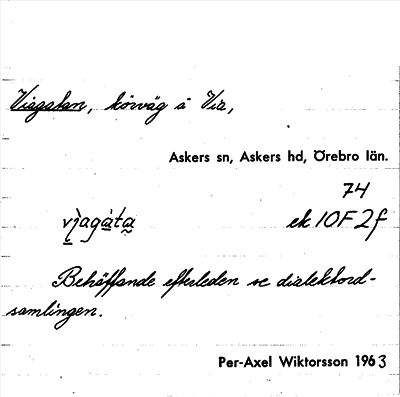 Viagatan, körväg å Via,
Askers sn, Askers hd, Örebro län.
74
vjagàta ek 10F 2f
Behäffande efterleden se dialektord-
samlingen.
Per-Axel Wiktorsson 1963